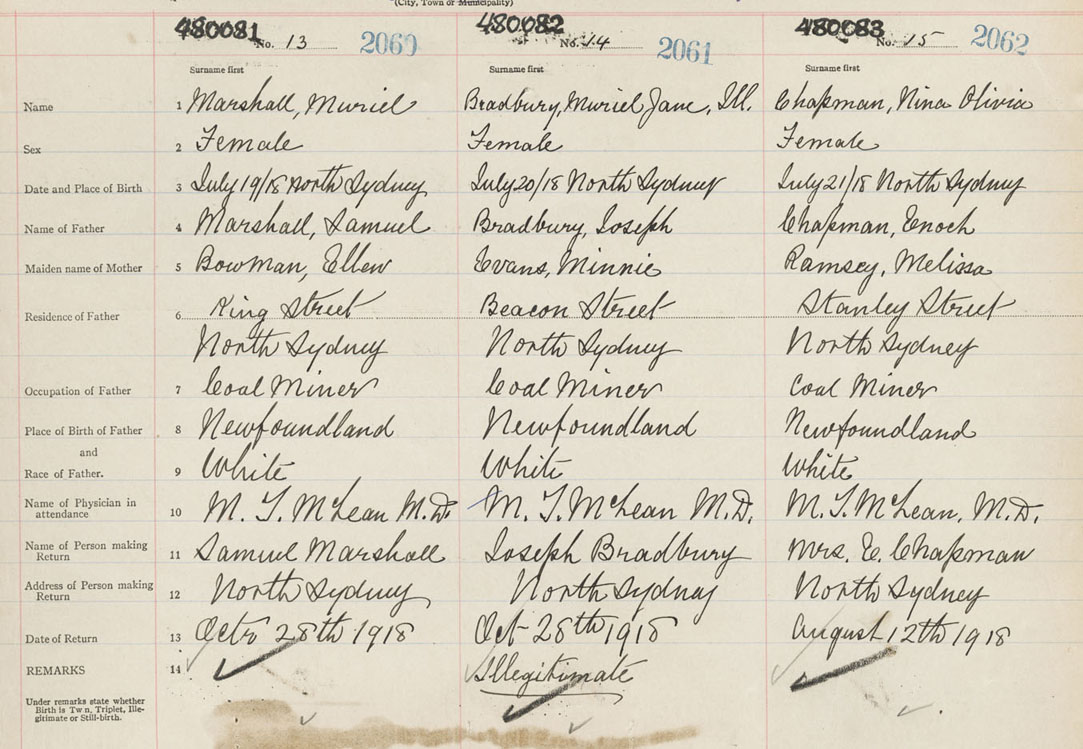 (City, Town or Municipality)
480081 480082 480083
No. 13 2060 No. 14 2061 No. 15 2062
Surname first Surname first Surname first
Name 1 Marshall, Muriel Bradbury, Muriel Jane, Ill. Chapman, Nina Olivia
Sex 2 Female Female Female
Date and Place of Birth 3 July 19/18 North Sydney July 20/18 North Sydney July 21/18 North Sydney
Name of Father 4 Marshall, Samuel Bradbury, Joseph Chapman, Enoch
Maiden name of Mother 5 Bowman, Ellen Evans, Minnie Ramsey, Melissa
Residence of Father 6 King Street Beacon Street Stanley Street
North Sydney North Sydney North Sydney
Occupation of Father 7 Coal Miner Coal Miner Coal Miner
Place of Birth of Father 8 Newfoundland Newfoundland Newfoundland
and
Race of Father. 9 White White White
Name of Physician in
attendance 10 M. T. McLean M.D. M. T. McLean M.D. M. T. McLean, M.D.
Name of Person making
Return 11 Samuel Marshall Joseph Bradbury Mrs. E. Chapman
Address of Person making
Return 12 North Sydney North Sydney North Sydney
Date of Return 13 Octr 28th 1918 Oct 28th 1918 August 12th 1918
REMARKS 14 Illegitimate
Under remarks state whether
Birth is Tw n, Triplet, Ille-
gitimate or Still-birth.